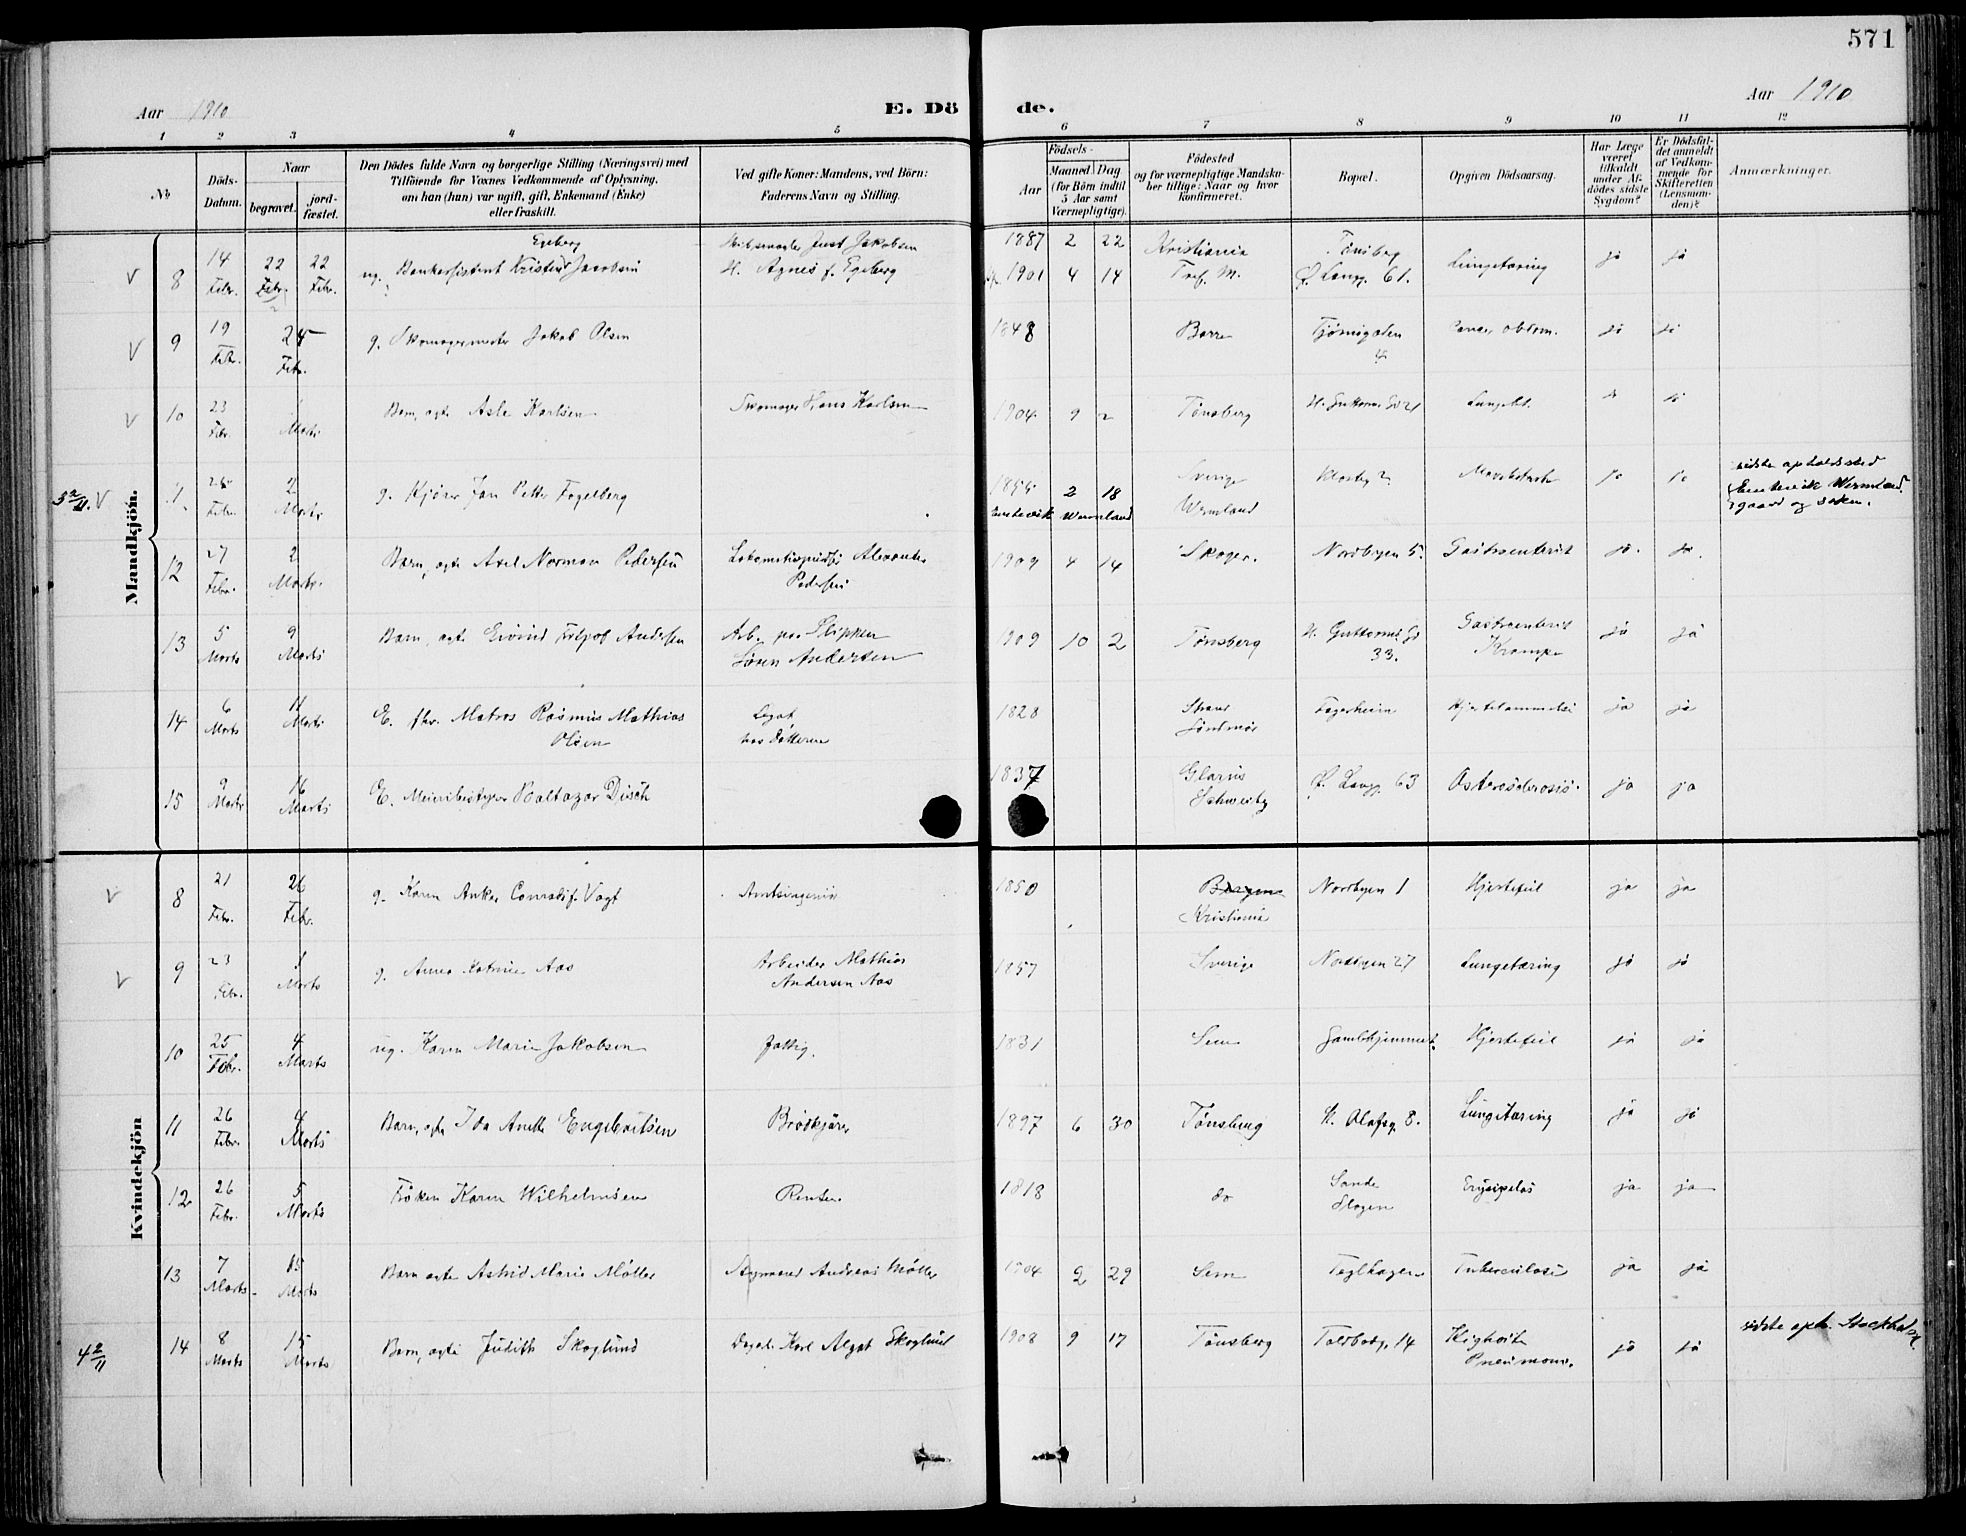 571
Aar 1910
E. Dö de.
Aar 1910
1 2 3 4 5 6 7 8 9 10 11 12
No
Döds-Datum.
Naar
begravet.
jord-fæstet.
Den Dödes fulde Navn og borgerlige Stilling (Næringsvei) med
Tilföiende for Voxnes Vedkommende af Oplysning,
om han (hun) var ugift, gift, Enkemand (Enke)
eller fraskilt.
Ved gifte Koner: Mandens, ved Börn:
Faderens Navn og Stilling.
Födsels-
Aar
Maaned Dag
(for Börn indtil
5 Aar samt
Værnepligtige).
Födested
og for værnepligtige Mandska-
ber tillige: Naar og hvor
konfirmeret.
Bopæl.
Opgiven Dödsaarsag.
Har Læge
været
tilkaldt
under Af-
dödes sidste
Sygdom?
Er Dödsfal-
det anmeldt
af Vedkom-
mende for
Skifteretten
(Lensman-
den)?
Anmærkninger.
Mandkjön.
Egeberg
8 14 Febr. 22 Febr. 22 Febr. ug. Jacobsen Just Jakobsen 1887 2 22 Kristiania Tönsberg Lungetæring ja ja
H. Agnes f. Egeberg 1901 4 14 Ø. Langg. 61.
9 19 Febr. 25 Febr. g. Skomagermester Jakob Olsen 1848 Borre Tjömegaden 4 ja ja
10 23 Febr. Marts Barn, ægte Asle Karlsen Skomager Hans Karlsen 1904 9 2 Tönsberg H. Guttorms Gd 21
3 2/11. V 11 Febr. 2 Marts g. Kjörer Jan Petter Fogelberg 1855 2 18 Sverige Wermland ja ja sidste opholdssted
Wermland Wermland
gaard og soken.
12 27 Febr. 2 Marts Barn, ægte Axel Norman Pedersen Alexander Pedersen 1909 4 14 Skoger. Nordbyen 5. Gastroenterit ja. ja.
13 5 Marts 9 Marts Barn, ægte Eivind Fritjof Andersen Arb. paa Slippen 1909 10 2 Tönsberg H. Guttorms Gd 33. Gastroenterit Krampe ja ja
Sören Andersen
14 6 Marts 11 Marts E. fhv. Matros Rasmus Mathias Olsen Legat hos datteren 1828 Söndmör Fagerheim ja ja
15 9 Marts 16 Marts E. Meieribestyrer Baltazar Disch 1837 Glarus Schweitz Ø. Langg. 63 ja ja
Kvindekjön
8 21 Febr. 26 Febr. g. Karen Anker Conradi f. Vogt Amtsingeniör 1850 Bergen Kristiania Nordbyen 1 Hjertefeil ja ja
9 23 Febr. 1 Marts g. Anna Katrine Aas Arbeider Mathias Andersen Aas 1857 Sverige Nordbyen 27 Lungetæring ja ja
10 25 Febr. 4 Marts ug. Karen Marie Jakobsen Fattig. 1831 Sem Gamlehjemmet Hjertefeil ja ja
11 26 Febr. 4 Marts Barn, ægte Ida Anette Engebretsen Brödkjörer 1897 6 30 Tönsberg St. Olafsg. 8. Lungetæring ja ja
12 26 Febr. 5 Marts Fröken Karen Wilhelmsen 1818 do Sande Slagen Erysipelas ja ja
13 7 Marts 15 Marts Barn ægte Astrid Marie Möller Andreas Möller 1904 2 29 Sem Teglhagen Tuberculose ja ja
4 2/11 14 8 Marts 15 Marts Barn, ægte Judith Skoglund Karl Algot Skoglund 1908 9 17 Tönsberg Toldbodg. 14 Kighoste Pneumoni. ja ja sidste oph. Stockholm